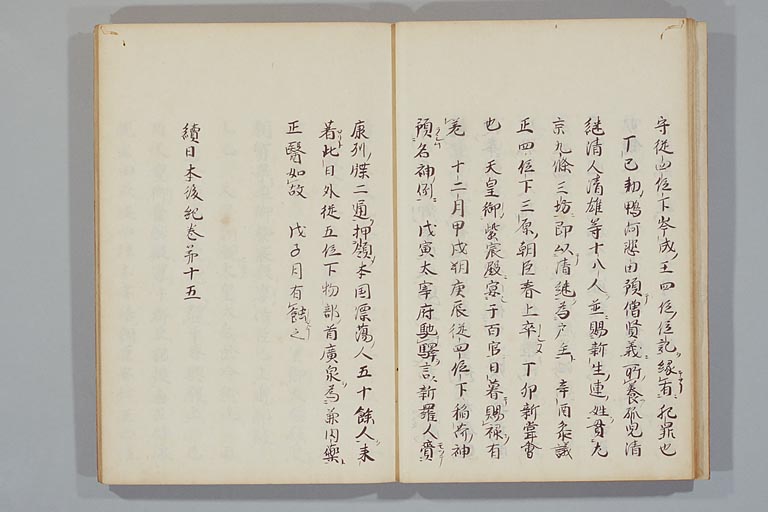 守從四位下岑成王四位位記緣有犯罪也
丁巳勅鴨河悲田預僧賢義所養孤児清
継清人清雄等十八人並賜新生連姓貫左
京九條三坊即以清継為戸主辛酉参議
正四位下三原朝臣春上卒丁卯新嘗會
也天皇御紫宸殿宴于百官日暮賜禄有
差十二月甲戌朔庚辰従四位下稲荷神
預名神例戊寅太宰府馳驛言新羅人齎
康列牒二通押領本国漂蕩人五十餘人来
着此日外従五位下物部首廣泉為兼内藥
正醫如故戊子月有蝕之
續日本後紀巻第十五